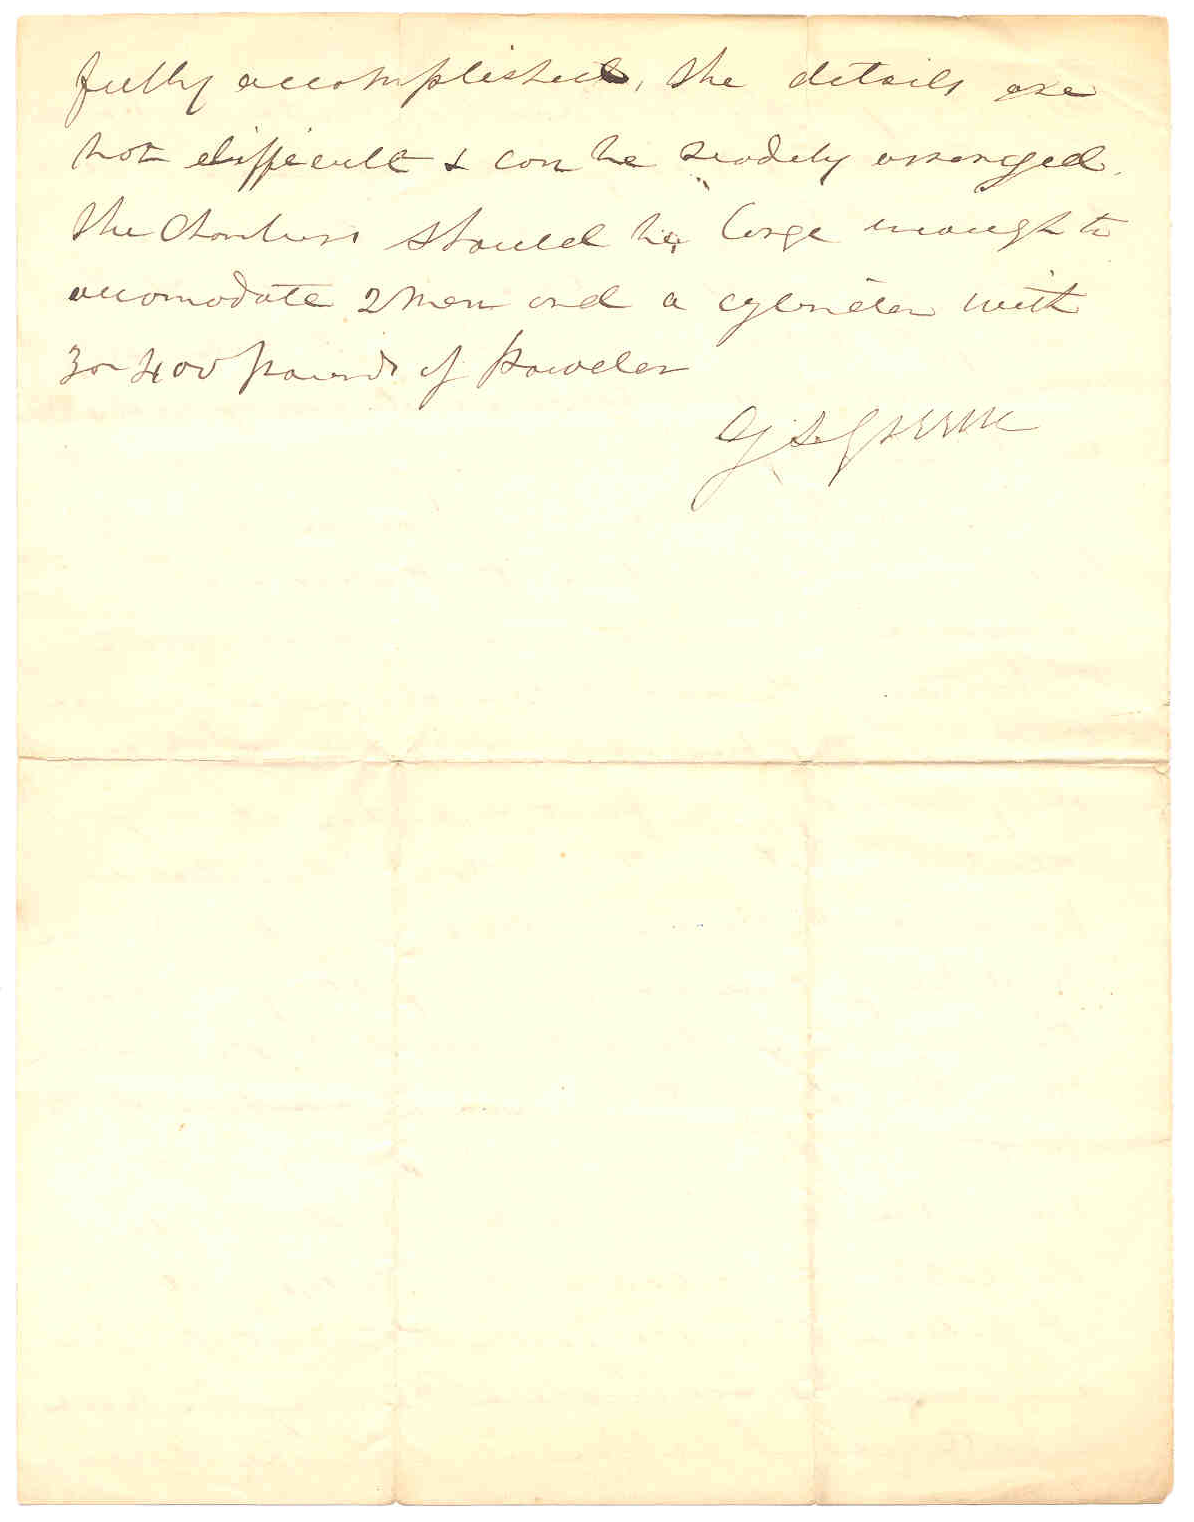 fully accomplished, The details are
not difficult & can be readely arranged.
The Chambers should be large enough to
accomodate 2 men and a cylinder with
3 or 400 pounds of Powder
G S Greene